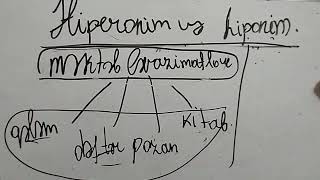 Hiperonim və hiponim.
məktəb ləvazimatları
qələm dəftər pozan kitab.